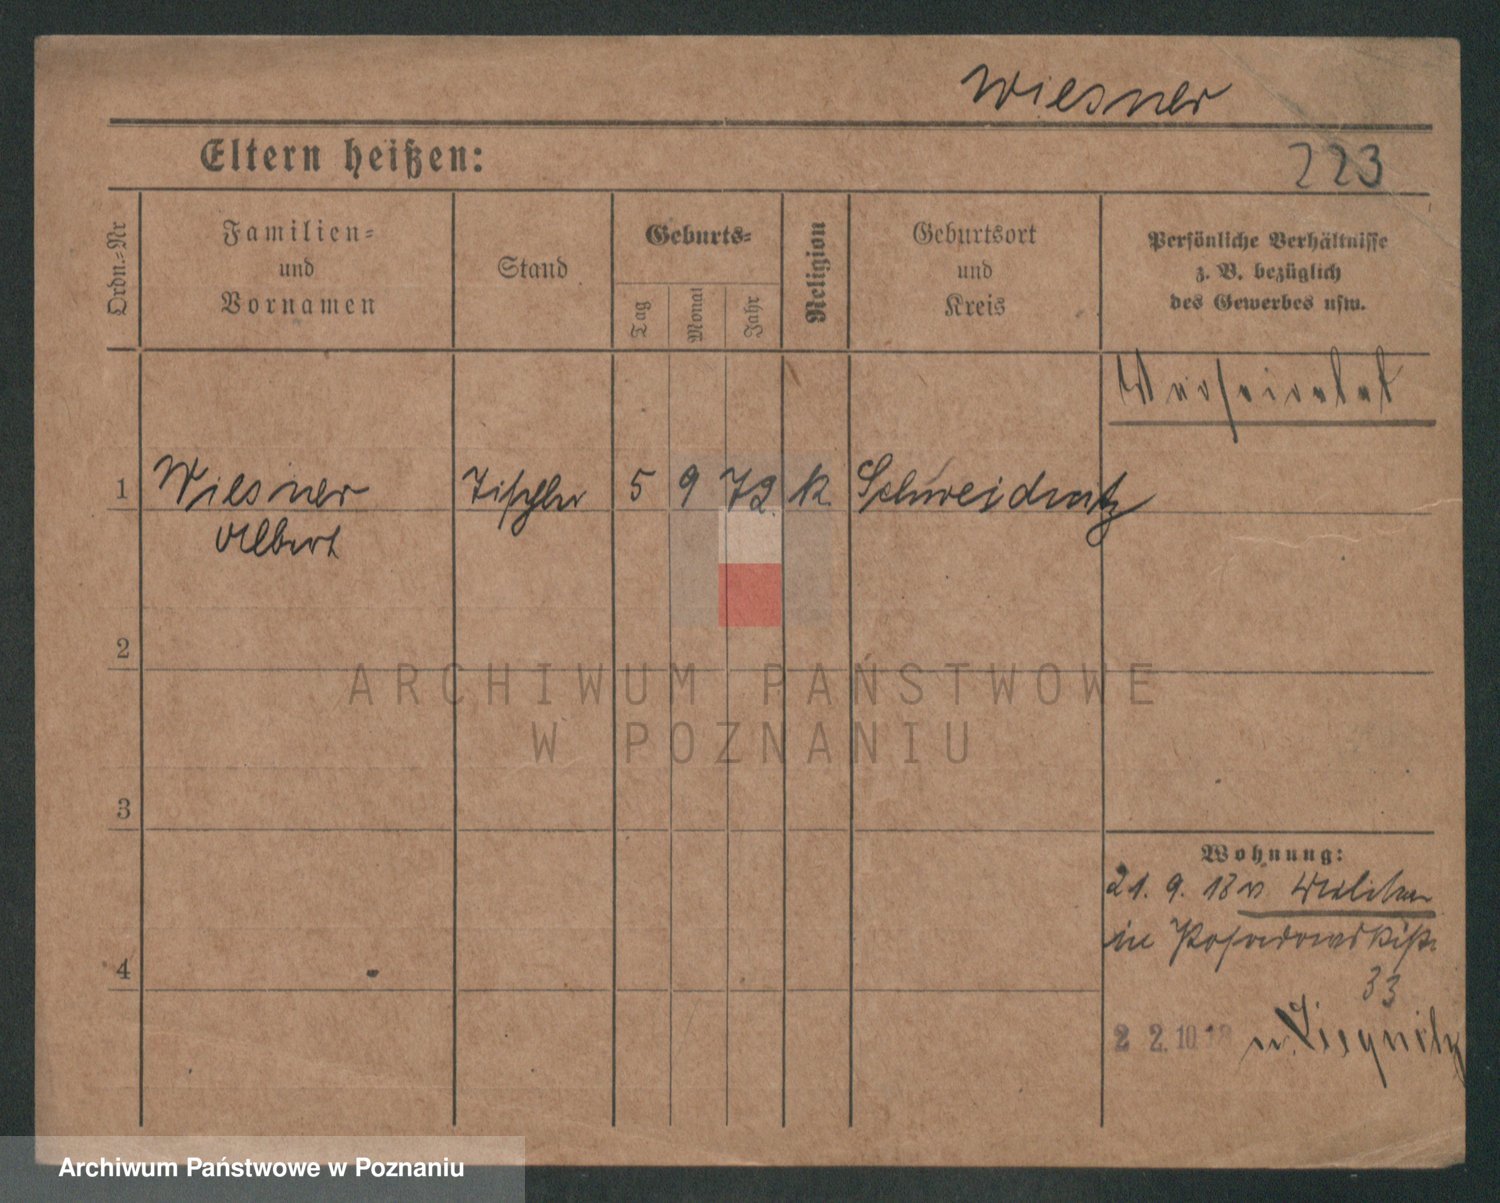 Wiesner
Eltern heißen:
223
Ordn.=Nr
Familien=
und
Vornamen
Stand
Geburts=
Tag
Monat
Jahr
Religion
Geburtsort
und
Kreis
Persönliche Verhältnisse
z. B. bezüglich
des Gewerbes usw.
1
Wiesner
Albert
Tischler
5
9
72
k
Schweidnitz
2
3
4
Wohnung:
21. 9. 18 v
in Posadowskistr.
33
22.10.18 n. Liegnitz
ARCHIWUM PAŃSTWOWE
W POZNANIU
Archiwum Państwowe w Poznaniu